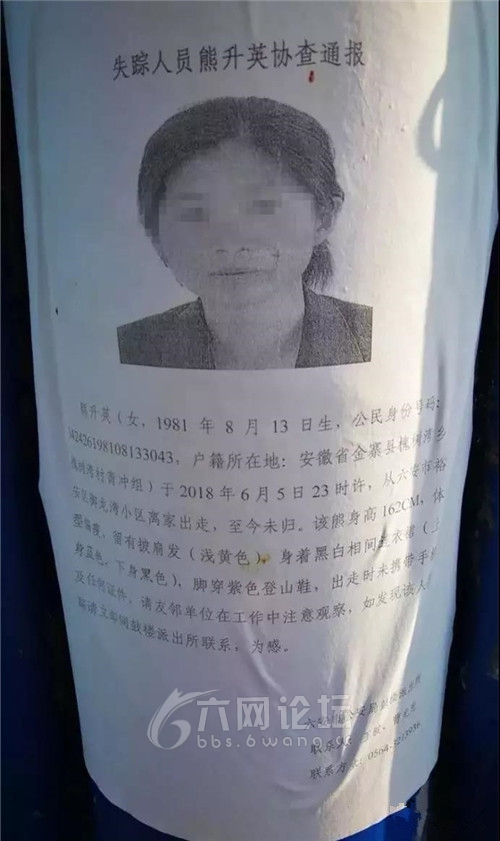 失踪人员熊升英协查通报
熊升英(女,1981年8月13日生,公民身份号码:
342426198108133043,户籍所在地:安徽省金寨县槐树湾乡
槐树湾村青冲组)于2018年6月5日23时许,从六安市裕
安区御龙湾小区离家出走,至今未归。该熊身高162CM,体
型偏瘦,留有披肩发(浅黄色),身着黑白相间连衣裙(上
身蓝色,下身黑色),脚穿紫色登山鞋,出走时未携带手机
及任何证件。请友邻单位在工作中注意观察,如发现该人
请立即同鼓楼派出所联系,为感。
六安市公安局鼓楼派出所
联系人:
联系方式:0564-3213936
六网论坛
bbs.6wang.cc